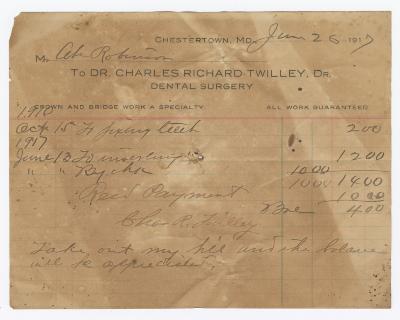 CHESTERTOWN, MD., June 26 1917
Mr Abe Robinson
TO DR. CHARLES RICHARD TWILLEY, DR.
DENTAL SURGERY
CROWN AND BRIDGE WORK A SPECIALTY. ALL WORK GUARANTEED
1916
Oct 15 To fixing teeth 2 00
1917
June 13 To 12 00
" " 10 00
10 00 14 00
Rec'd Payment 10 00
Due 4 00
Chas R. Twilley
Take out my bill and the balance
will be appreciated.